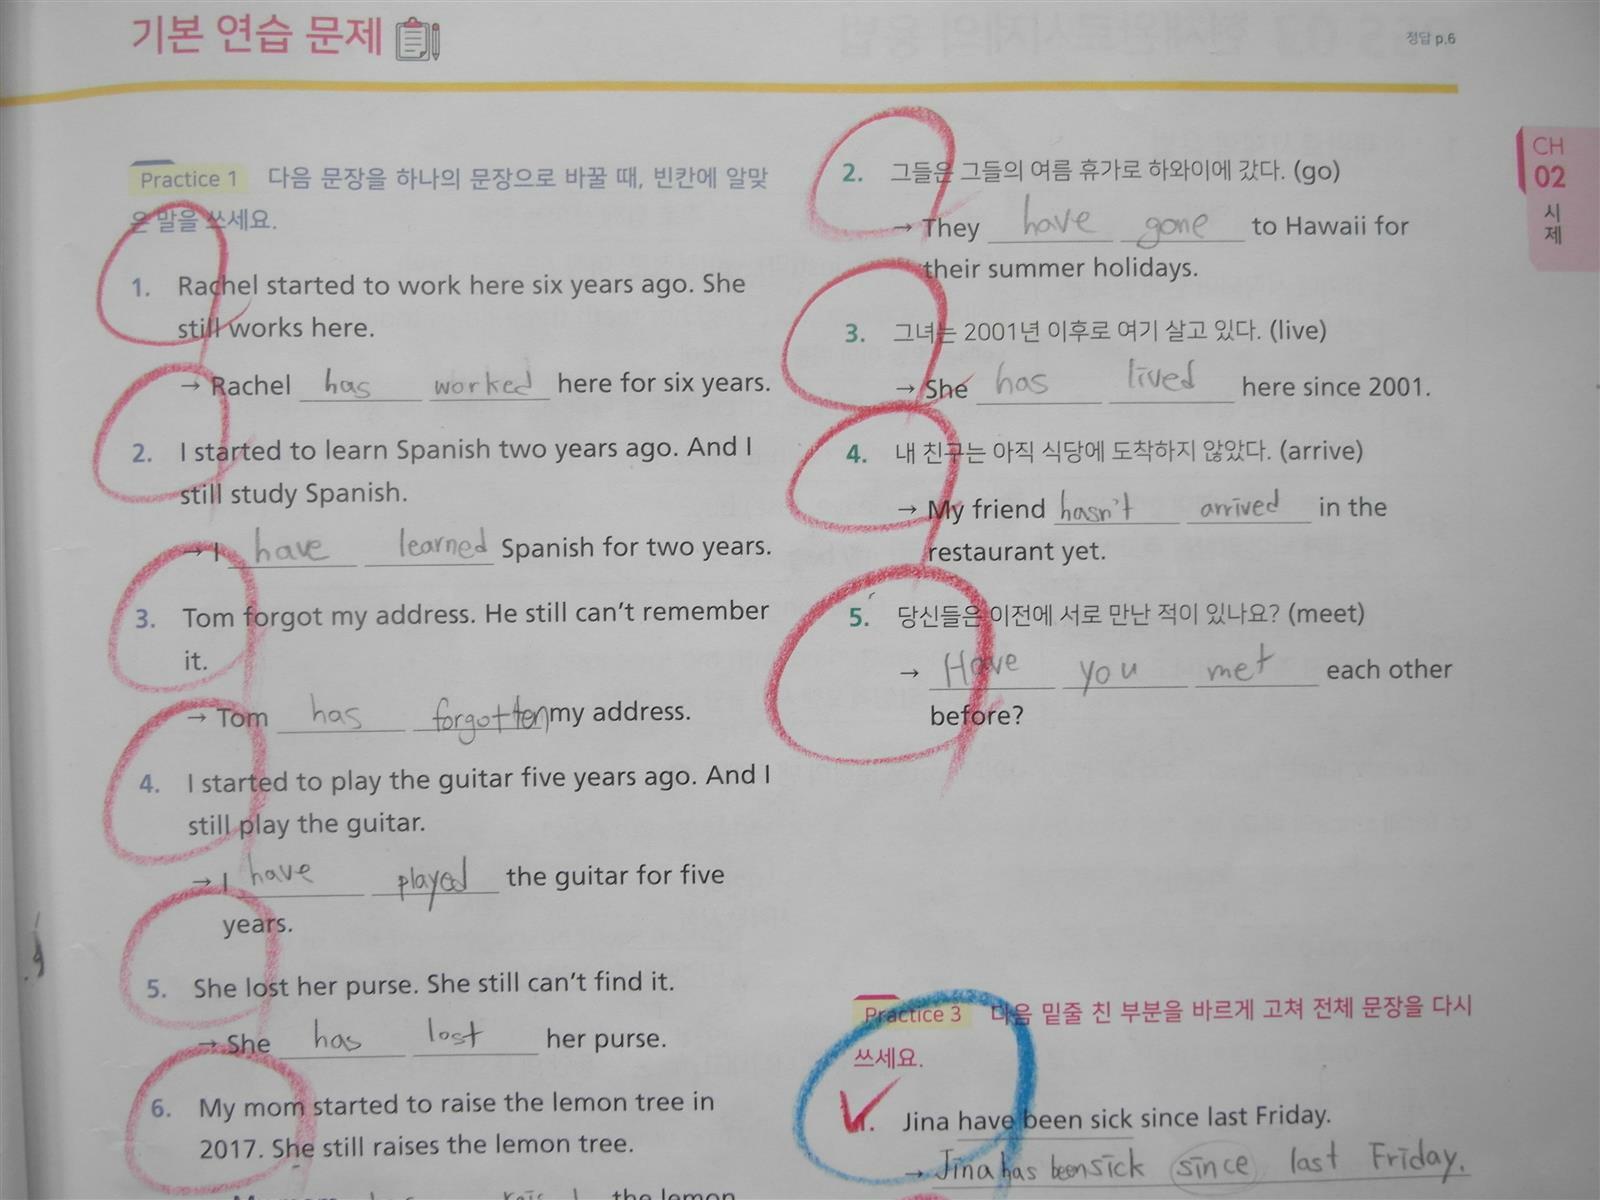 기본 연습 문제
정답 p.6
CH
02
시
제
Practice 1 다음 문장을 하나의 문장으로 바꿀 때, 빈칸에 알맞
은 말을 쓰세요.
1. Rachel started to work here six years ago. She
still works here.
→ Rachel has worked here for six years.
2. I started to learn Spanish two years ago. And I
still study Spanish.
→ I have learned Spanish for two years.
3. Tom forgot my address. He still can't remember
it.
→ Tom has forgotten my address.
4. I started to play the guitar five years ago. And I
still play the guitar.
→ I have played the guitar for five
years.
5. She lost her purse. She still can't find it.
→ She has lost her purse.
6. My mom started to raise the lemon tree in
2017. She still raises the lemon tree.
the lemon
2. 그들은 그들의 여름 휴가로 하와이에 갔다. (go)
→ They have gone to Hawaii for
their summer holidays.
3. 그녀는 2001년 이후로 여기 살고 있다. (live)
→ She has lived here since 2001.
4. 내 친구는 아직 식당에 도착하지 않았다. (arrive)
→ My friend hasn't arrived in the
restaurant yet.
5. 당신들은 이전에 서로 만난 적이 있나요? (meet)
→ Have you met each other
before?
Practice 3 다음 밑줄 친 부분을 바르게 고쳐 전체 문장을 다시
쓰세요.
1. Jina have been sick since last Friday.
→ Jina has been sick since last Friday.